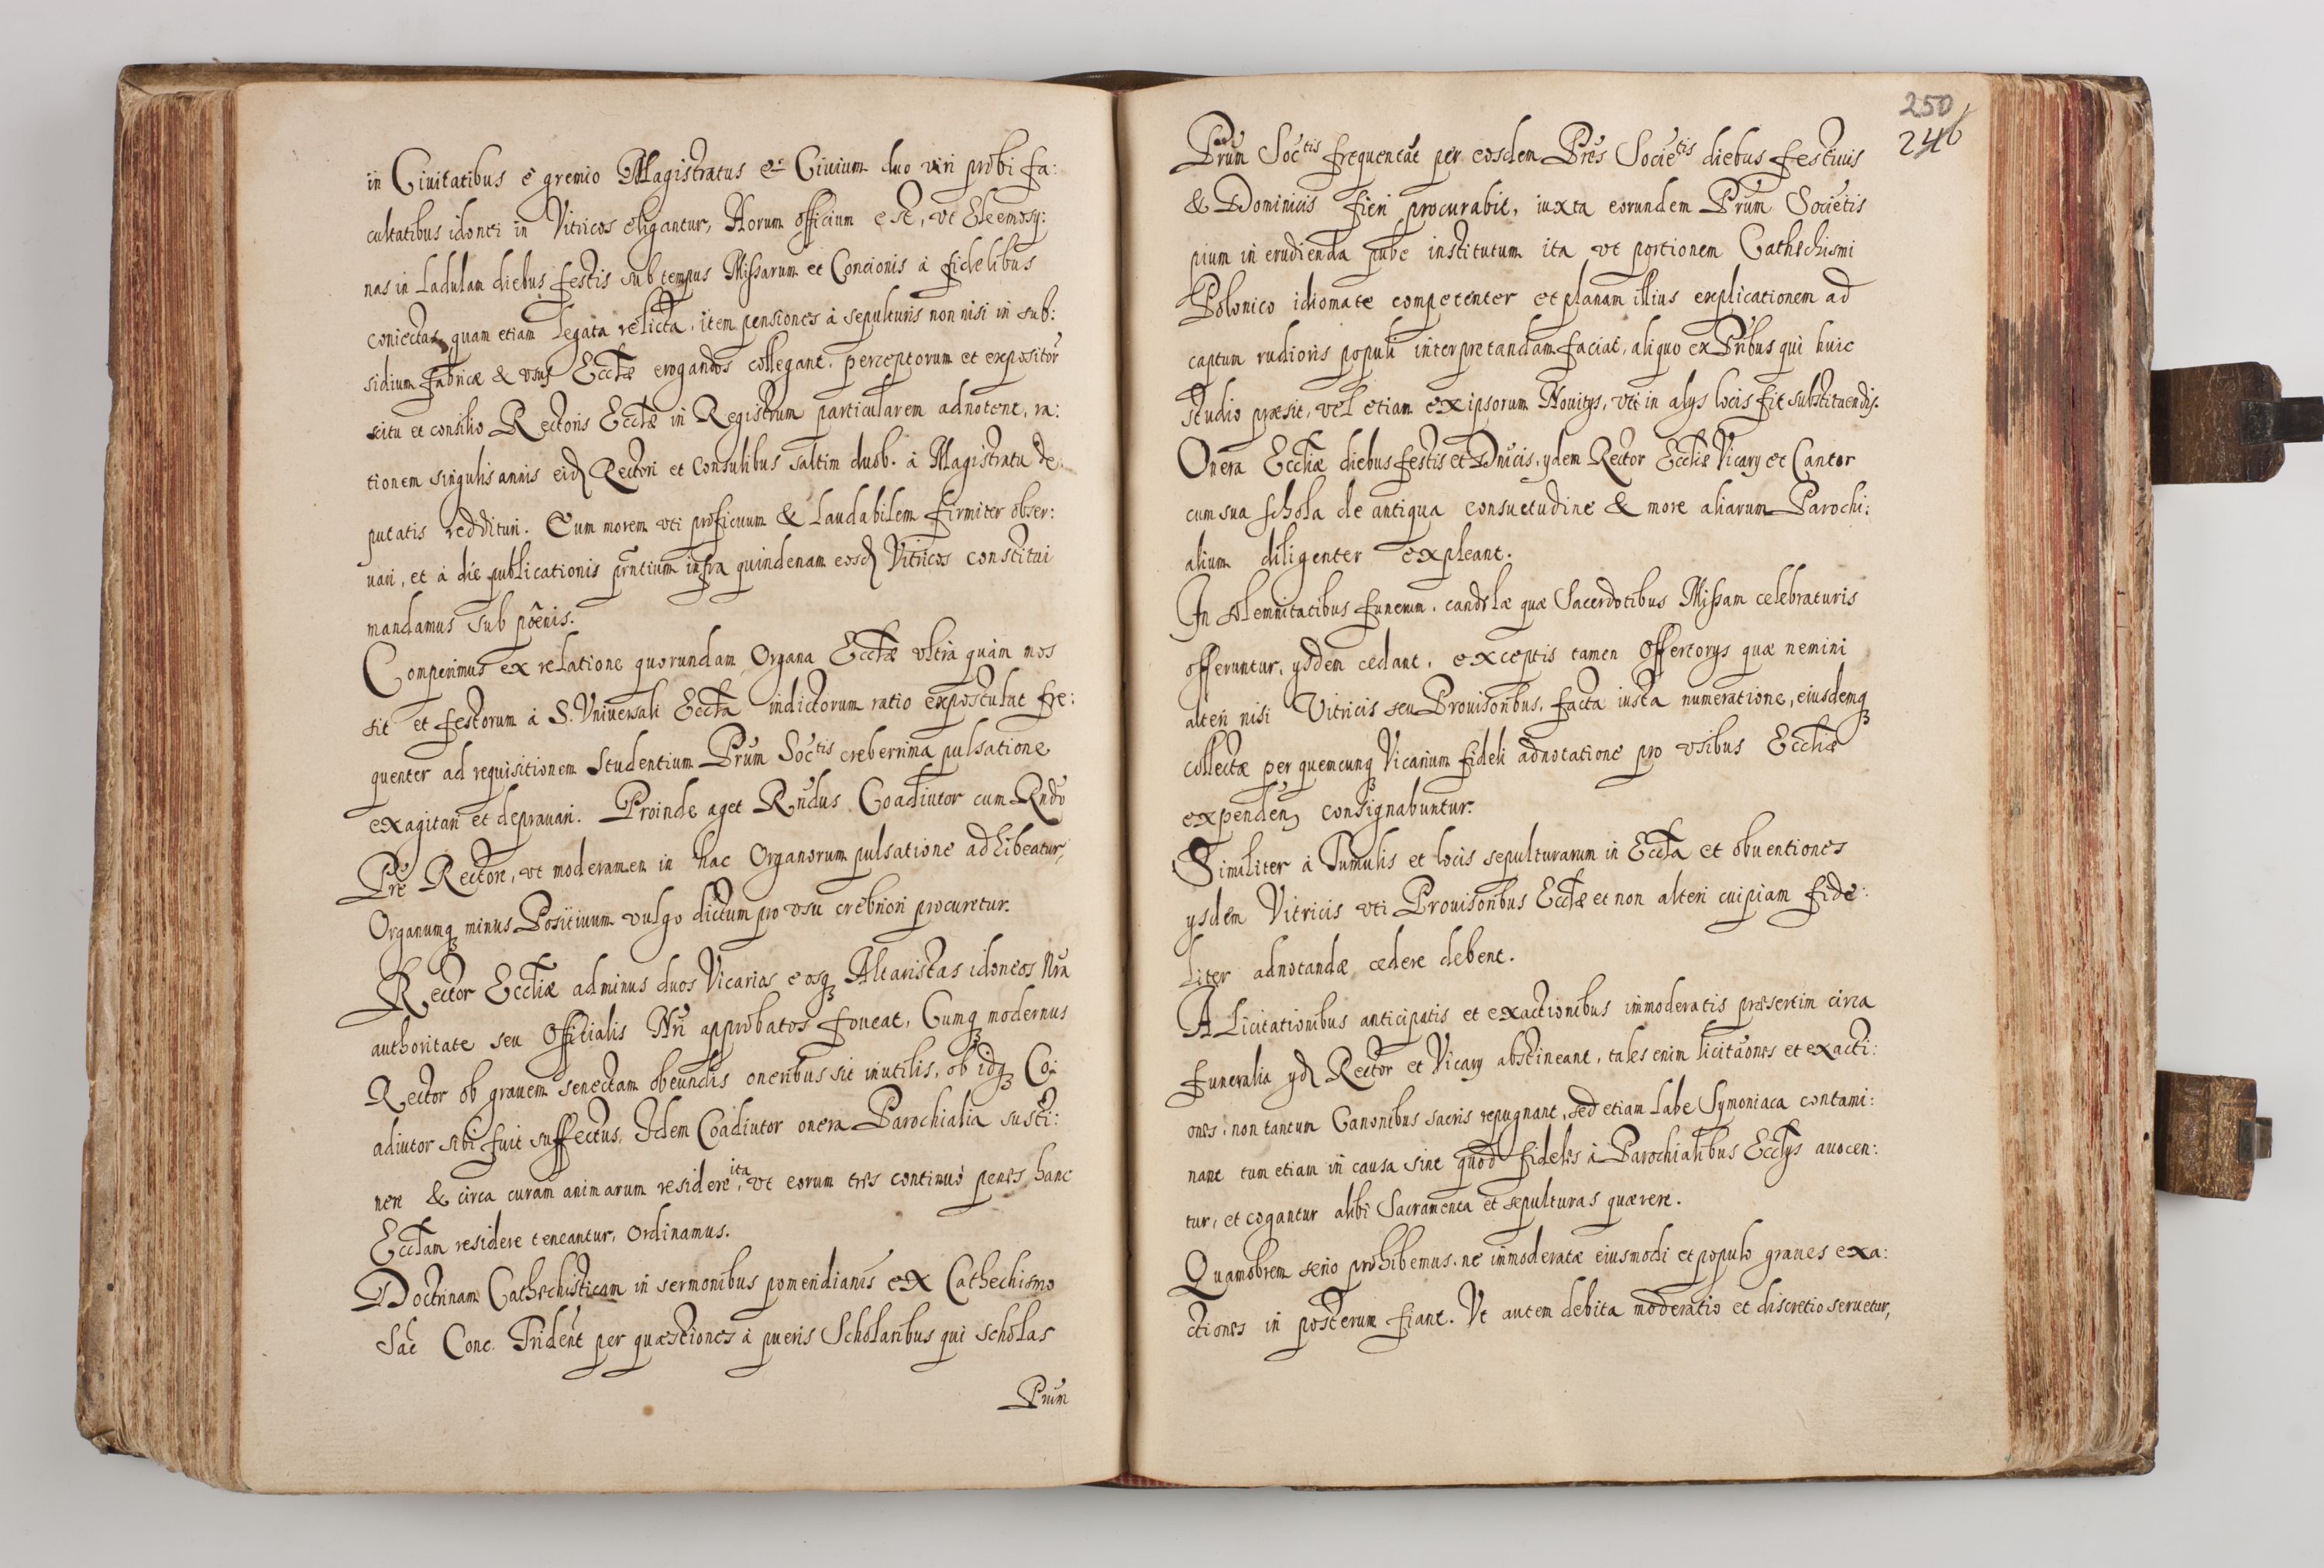 in Ciuitatibus è gremio Magistratus et Ciuium duo viri probi fa:
cultatibus idonei in Vitricos eligantur, Horum officium est, vt Eleemosy:
nas in Ladulam diebus festis sub tempus Missarum et Concionis à fidelibus
coniectas, quam etiam legata relicta, item pensiones à sepulturis non nisi in sub:
sidium fabricæ & vsus Ecclæ erogandos collegant, perceptorum et expositor̃
scitu et consilio Rectoris Ecclæ in Registrum particularem adnotent, ra:
tionem singulis annis eid Rectori et Consulibus saltim duob. à Magistratu de:
putatis reddituri. Eum morem vti proficuum & Laudabilem firmiter obser:
uari, et à die publicationis pn̄tium infra quindenam eosd Vitricos constitui
mandamus sub pôenis.
Comperimus ex relatione quorundam Organa Ecclæ vltra quàm mos
sit et festorum à S. Vniuersali Eccla indictorum ratio expostulat fre:
quenter ad requisitionem Studentium Prum Soctis creberrima pulsatione
exagitari et deprauari. Proinde aget Rndus Coadiutor cum Rndo
Pre Rectore, vt moderamen in hac Organorum pulsatione adhibeatur,
Organumq minus Positiuum vulgo dictum pro vsu crebriori procuretur.
Rector Eccliæ ad minus duos Vicarios eosq Altaristas idoneos Nra
authoritate seu Officialis Nri approbatos foueat, Cumq modernus
Rector ob grauem senectam obeundis oneribus sit inutilis, ob idq Co:
adiutor sibi fuit suffectus, Idem Coadiutor onera Parochialia susti:
nere & circa curam animarum residere, ita vt eorum tres continuò penes hanc
Ecclam residere teneantur, Ordinamus.
Doctrinam Cathechisticam in sermonibus pomeridianis ex Cathechismo
Sac Conc. Trident per quæstiones à pueris Scholaribus qui scholas
Prum
250
246
Prum Soctis frequentāt per eosdem Pres Societis diebus festiuis
& Dominicis fieri procurabit, iuxta eorundem Prum Societis
pium in erudienda pube institutum ita vt portionem Cathechismi
Polonico idiomate competenter et planam illius explicationem ad
captum rudioris populi interpretandam faciat, aliquo ex Pribus qui huic
studio præsit, vel etiam ex ipsorum Nouitys, vti in alys locis fit substituendis.
Onera Eccliæ diebus festis et Dnicis, ydem Rector Eccliæ Vicary et Cantor
cum sua schola de antiqua consuetudine & more aliarum Parochi:
alium diligenter expleant.
In solemnitatibus funerum, candelæ quæ Sacerdotibus Missam celebraturis
offeruntur, ysdem cedant, exceptis tamen Offertorys quæ nemini
alteri nisi Vitricis seu Prouisoribus, facta iusta numeratione, eiusdemq
collectæ per quemcunq Vicarium fideli adnotatione pro vsibus Eccliæ
expenden, consignabuntur.
Similiter à Tumulis et locis sepulturarum in Eccla et obuentiones
ysdem Vitricis vti Prouisoribus Ecclæ et non alteri cuipiam fide:
liter adnotandæ cedere debent.
A Licitationibus anticipatis et exactionibus immoderatis præsertim circa
funeralia yd Rector et Vicary abstineant, tales enim licitāones et exacti:
ones, non tantum Canonibus sacris repugnant, sed etiam Labe Symoniaca contami:
nant tum etiam in causa sint quod fideles à Parochialibus Ecclys auocen:
tur, et cogantur alibi Sacramenta et sepulturas quærere.
Quamobrem serio prohibemus, ne immoderatæ eiusmodi et populo graues exa:
ctiones in posterum fiant. Vt autem debita moderatio et discretio seruetur,